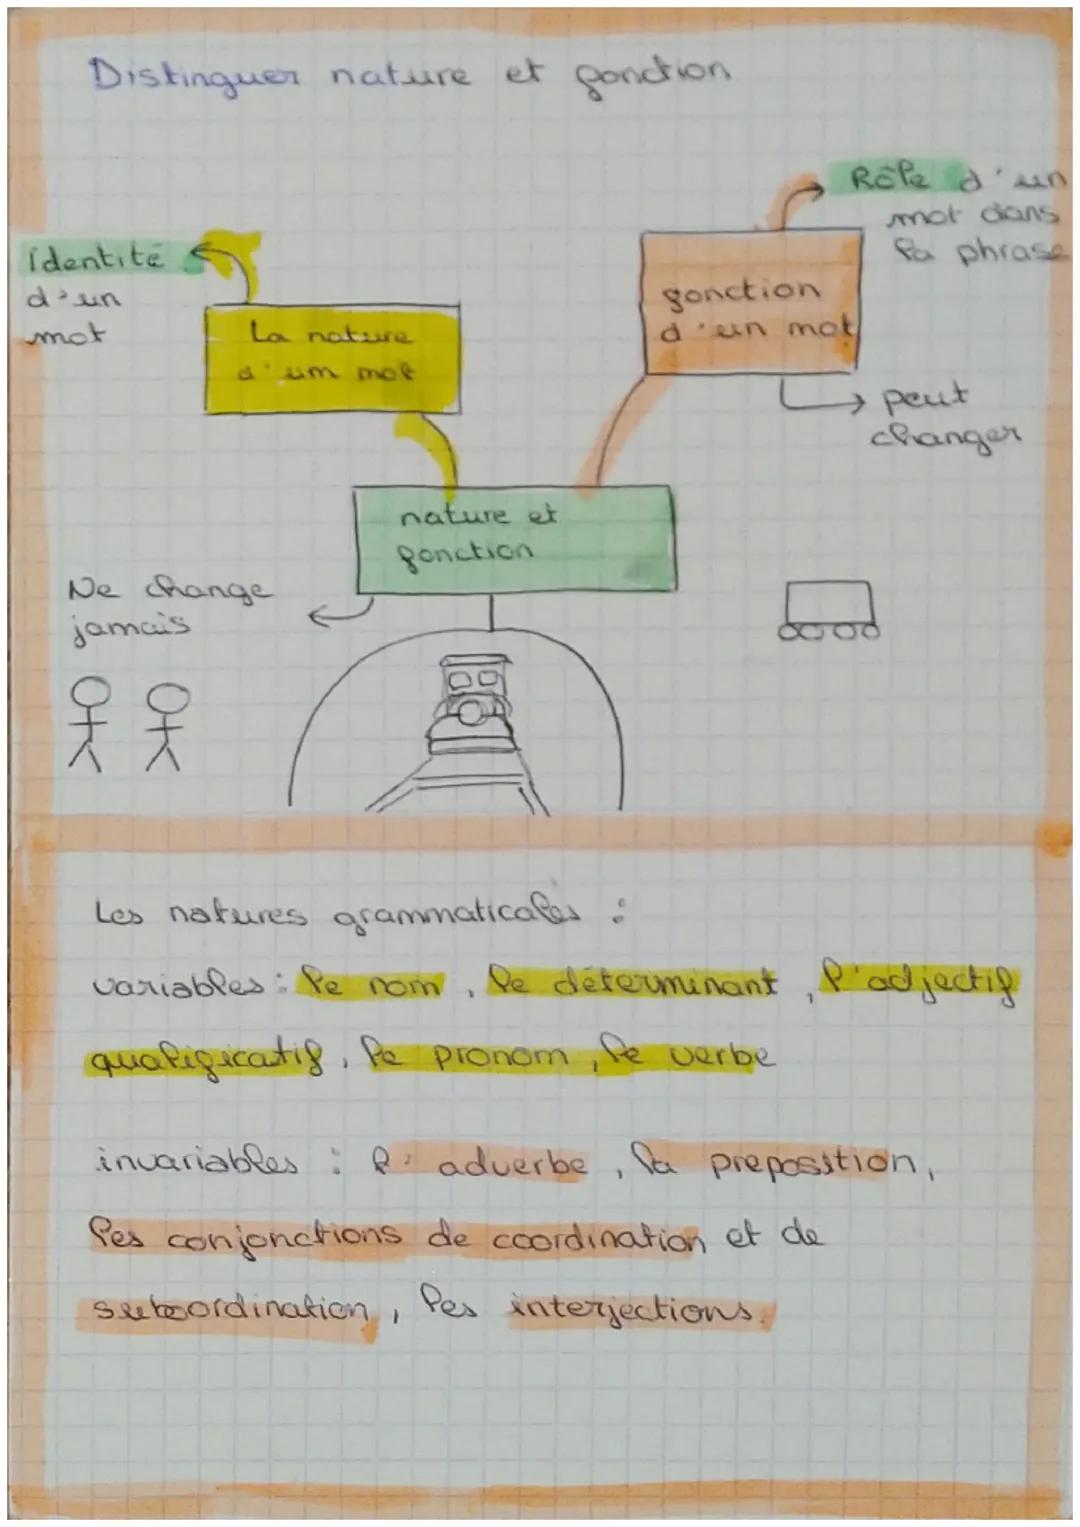 Distinguer nature et fonction
Rôle d'un
mot dans
la phrase
identité
d'un
mot
fonction
d'un mot
La nature
d'un mot
peut
changer
nature et
fonction
Ne change
jamais
Les natures grammaticales :
variables : le nom, le déterminant, l'adjectif
qualificatif, le pronom, le verbe
invariables : l'adverbe, la preposition,
les conjonctions de coordination et de
subordination, les interjections.